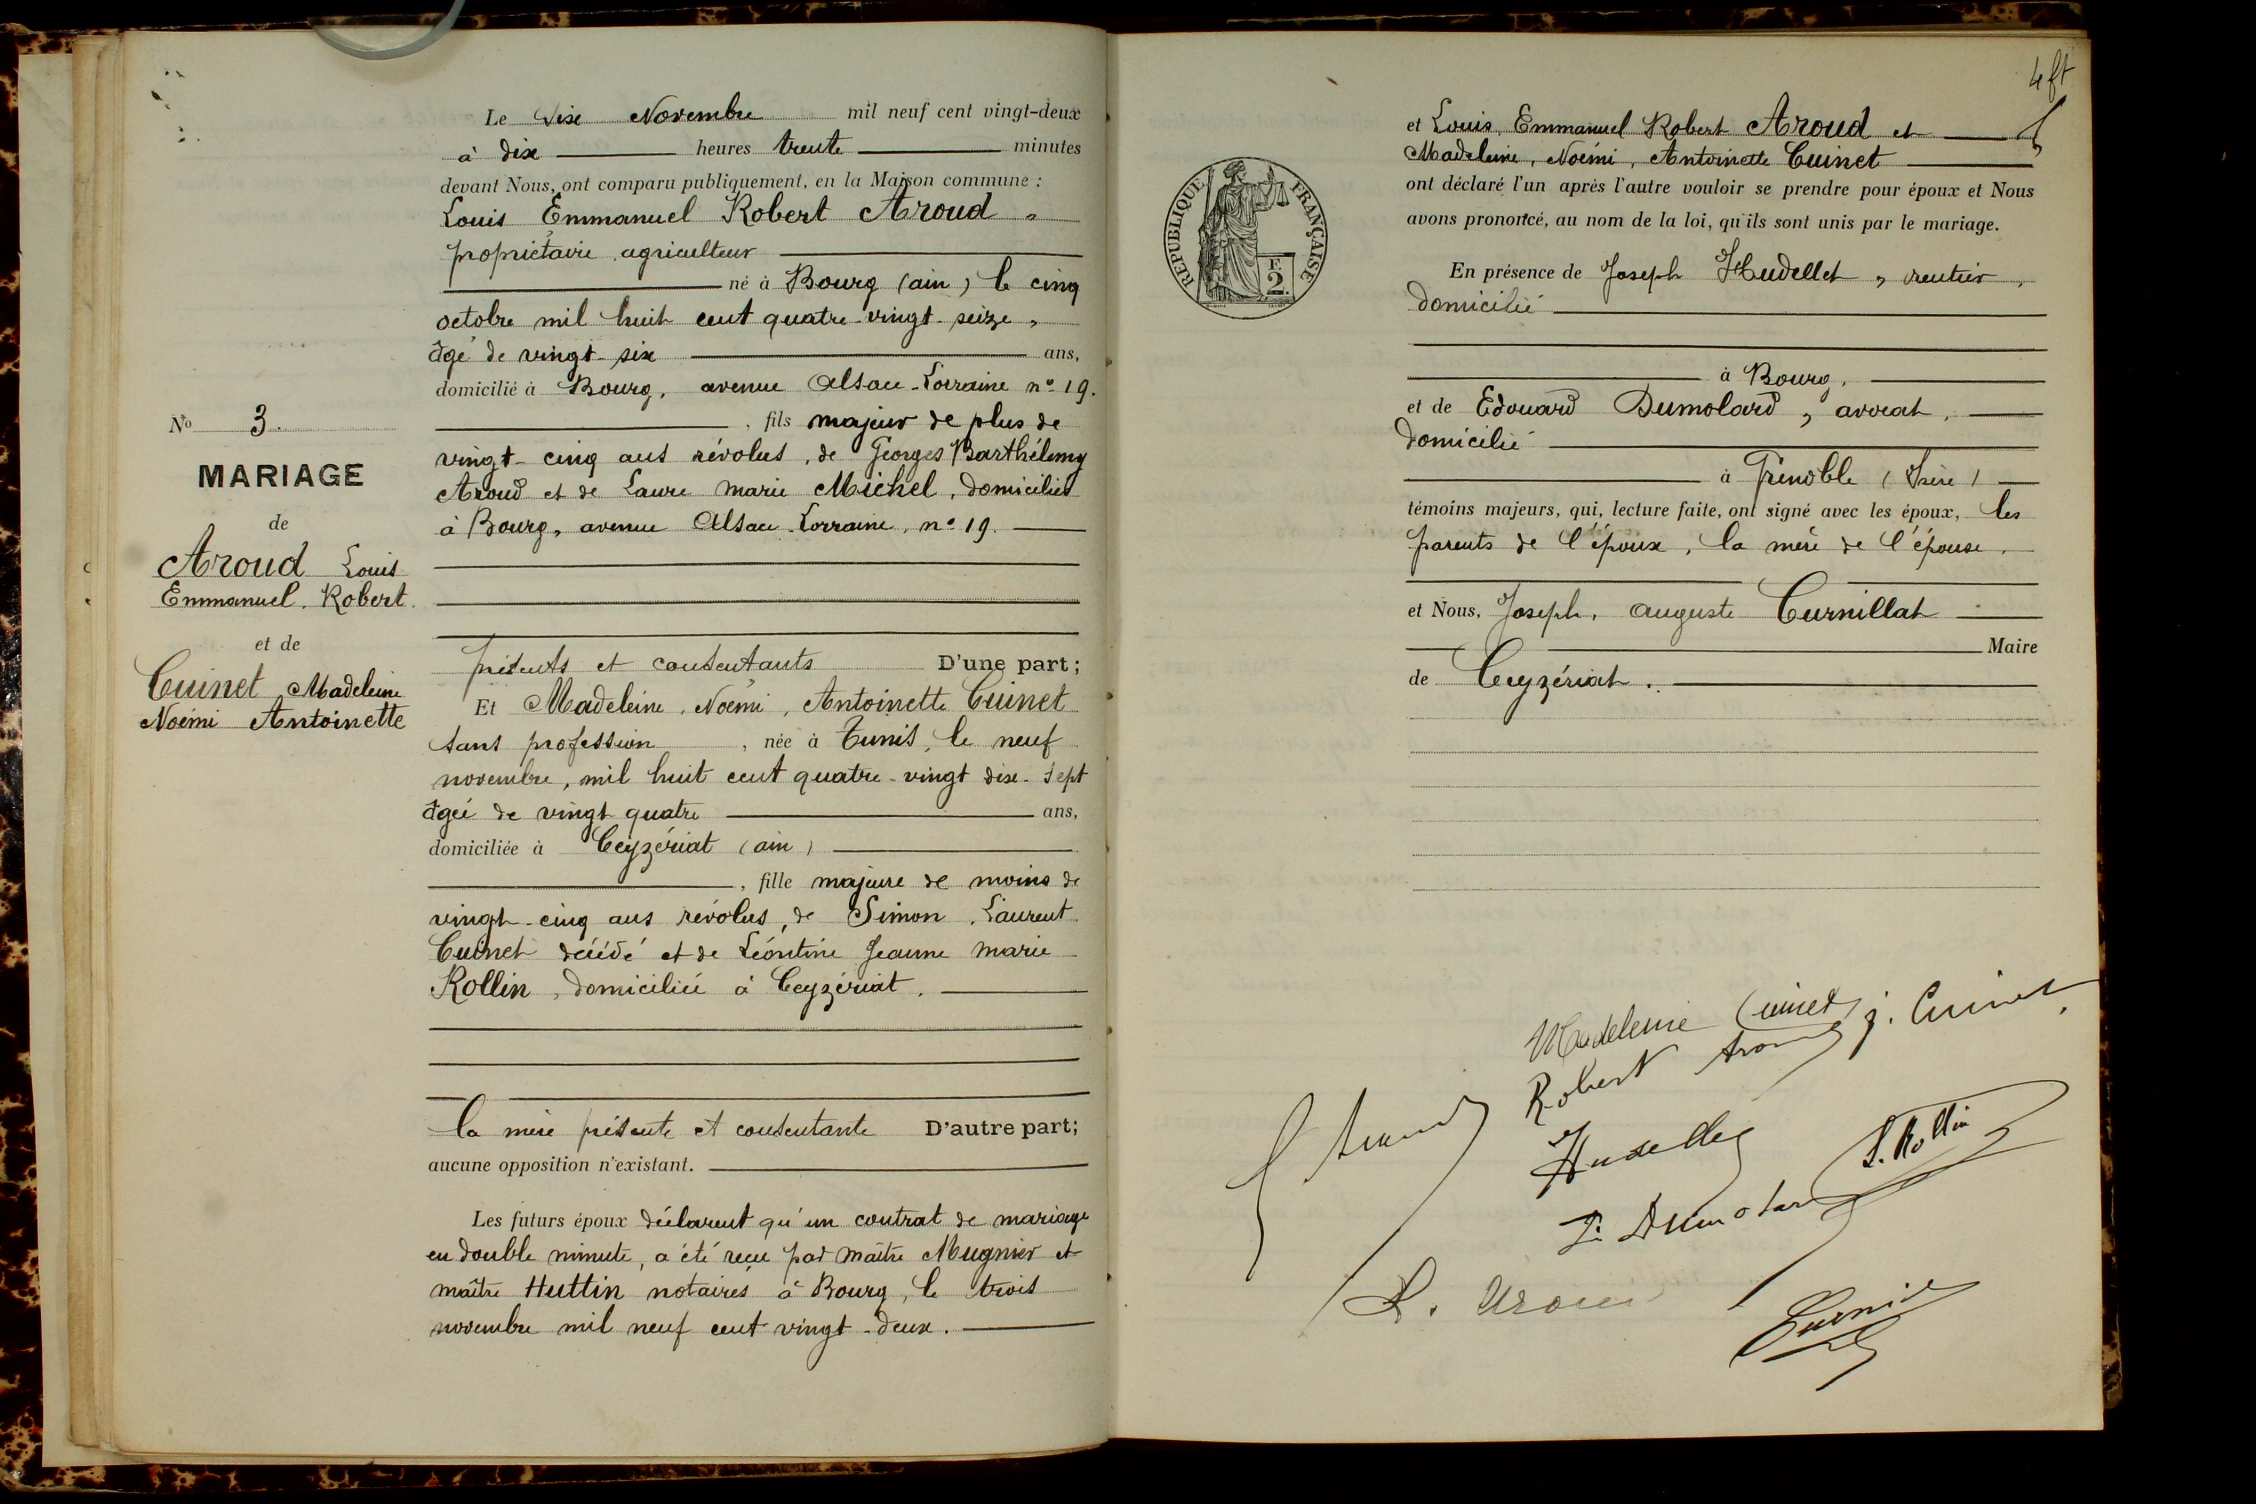 Le dix Novembre mil neuf cent vingt-deux
à dix heures trente minutes
devant Nous, ont comparu publiquement, en la Maison commune :
Louis Emmanuel Robert Aroud
propriétaire agriculteur
né à Bourg (ain) le cinq
octobre mil huit cent quatre-vingt-seize,
âgé de vingt-six ans,
domicilié à Bourg, avenue Alsace-Lorraine n° 19.
, fils majeur de plus de
vingt-cinq ans révolus, de Georges Barthélemy
Aroud et de Laure Marie Michel, domiciliés
à Bourg, avenue Alsace-Lorraine, n° 19.
présents et consentants D'une part;
Et Madeleine, Noémi, Antoinette Cuinet
sans profession, née à Tunis, le neuf
novembre, mil huit cent quatre-vingt dix-sept
âgée de vingt quatre ans,
domiciliée à Ceyzériat (ain)
, fille majeure de moins de
vingt-cinq ans révolus, de Simon, Laurent
Cuinet décédé et de Léontine Jeanne Marie
Rollin, domiciliée à Ceyzériat.
la mère présente et consentante D'autre part;
aucune opposition n'existant.
Les futurs époux déclarent qu'un contrat de mariage
en double minute, a été reçu par maître Mugnier et
maître Huttin notaires à Bourg, le trois
novembre mil neuf cent vingt-deux.
N° 3.
MARIAGE
de
Aroud Louis
Emmanuel. Robert.
et de
Cuinet Madeleine
Noémi Antoinette
et Louis, Emmanuel Robert Aroud et
Madeleine, Noémi, Antoinette Cuinet
ont déclaré l'un après l'autre vouloir se prendre pour époux et Nous
avons prononcé, au nom de la loi, qu'ils sont unis par le mariage.
RÉPUBLIQUE FRANÇAISE
F.
2.
En présence de Joseph Hudellet, rentier,
domicilié
à Bourg,
et de Edouard Dumolard, avocat,
domicilié
à Grenoble (Isère)
témoins majeurs, qui, lecture faite, ont signé avec les époux, les
parents de l'époux, la mère de l'épouse.
et Nous, Joseph, Auguste Curnillat
Maire
de Ceyzériat.
Madeleine Cuinet
J. Cuinet
Robert Aroud
Hudellet
L. Rollin
E. Dumolard
L. Aroud